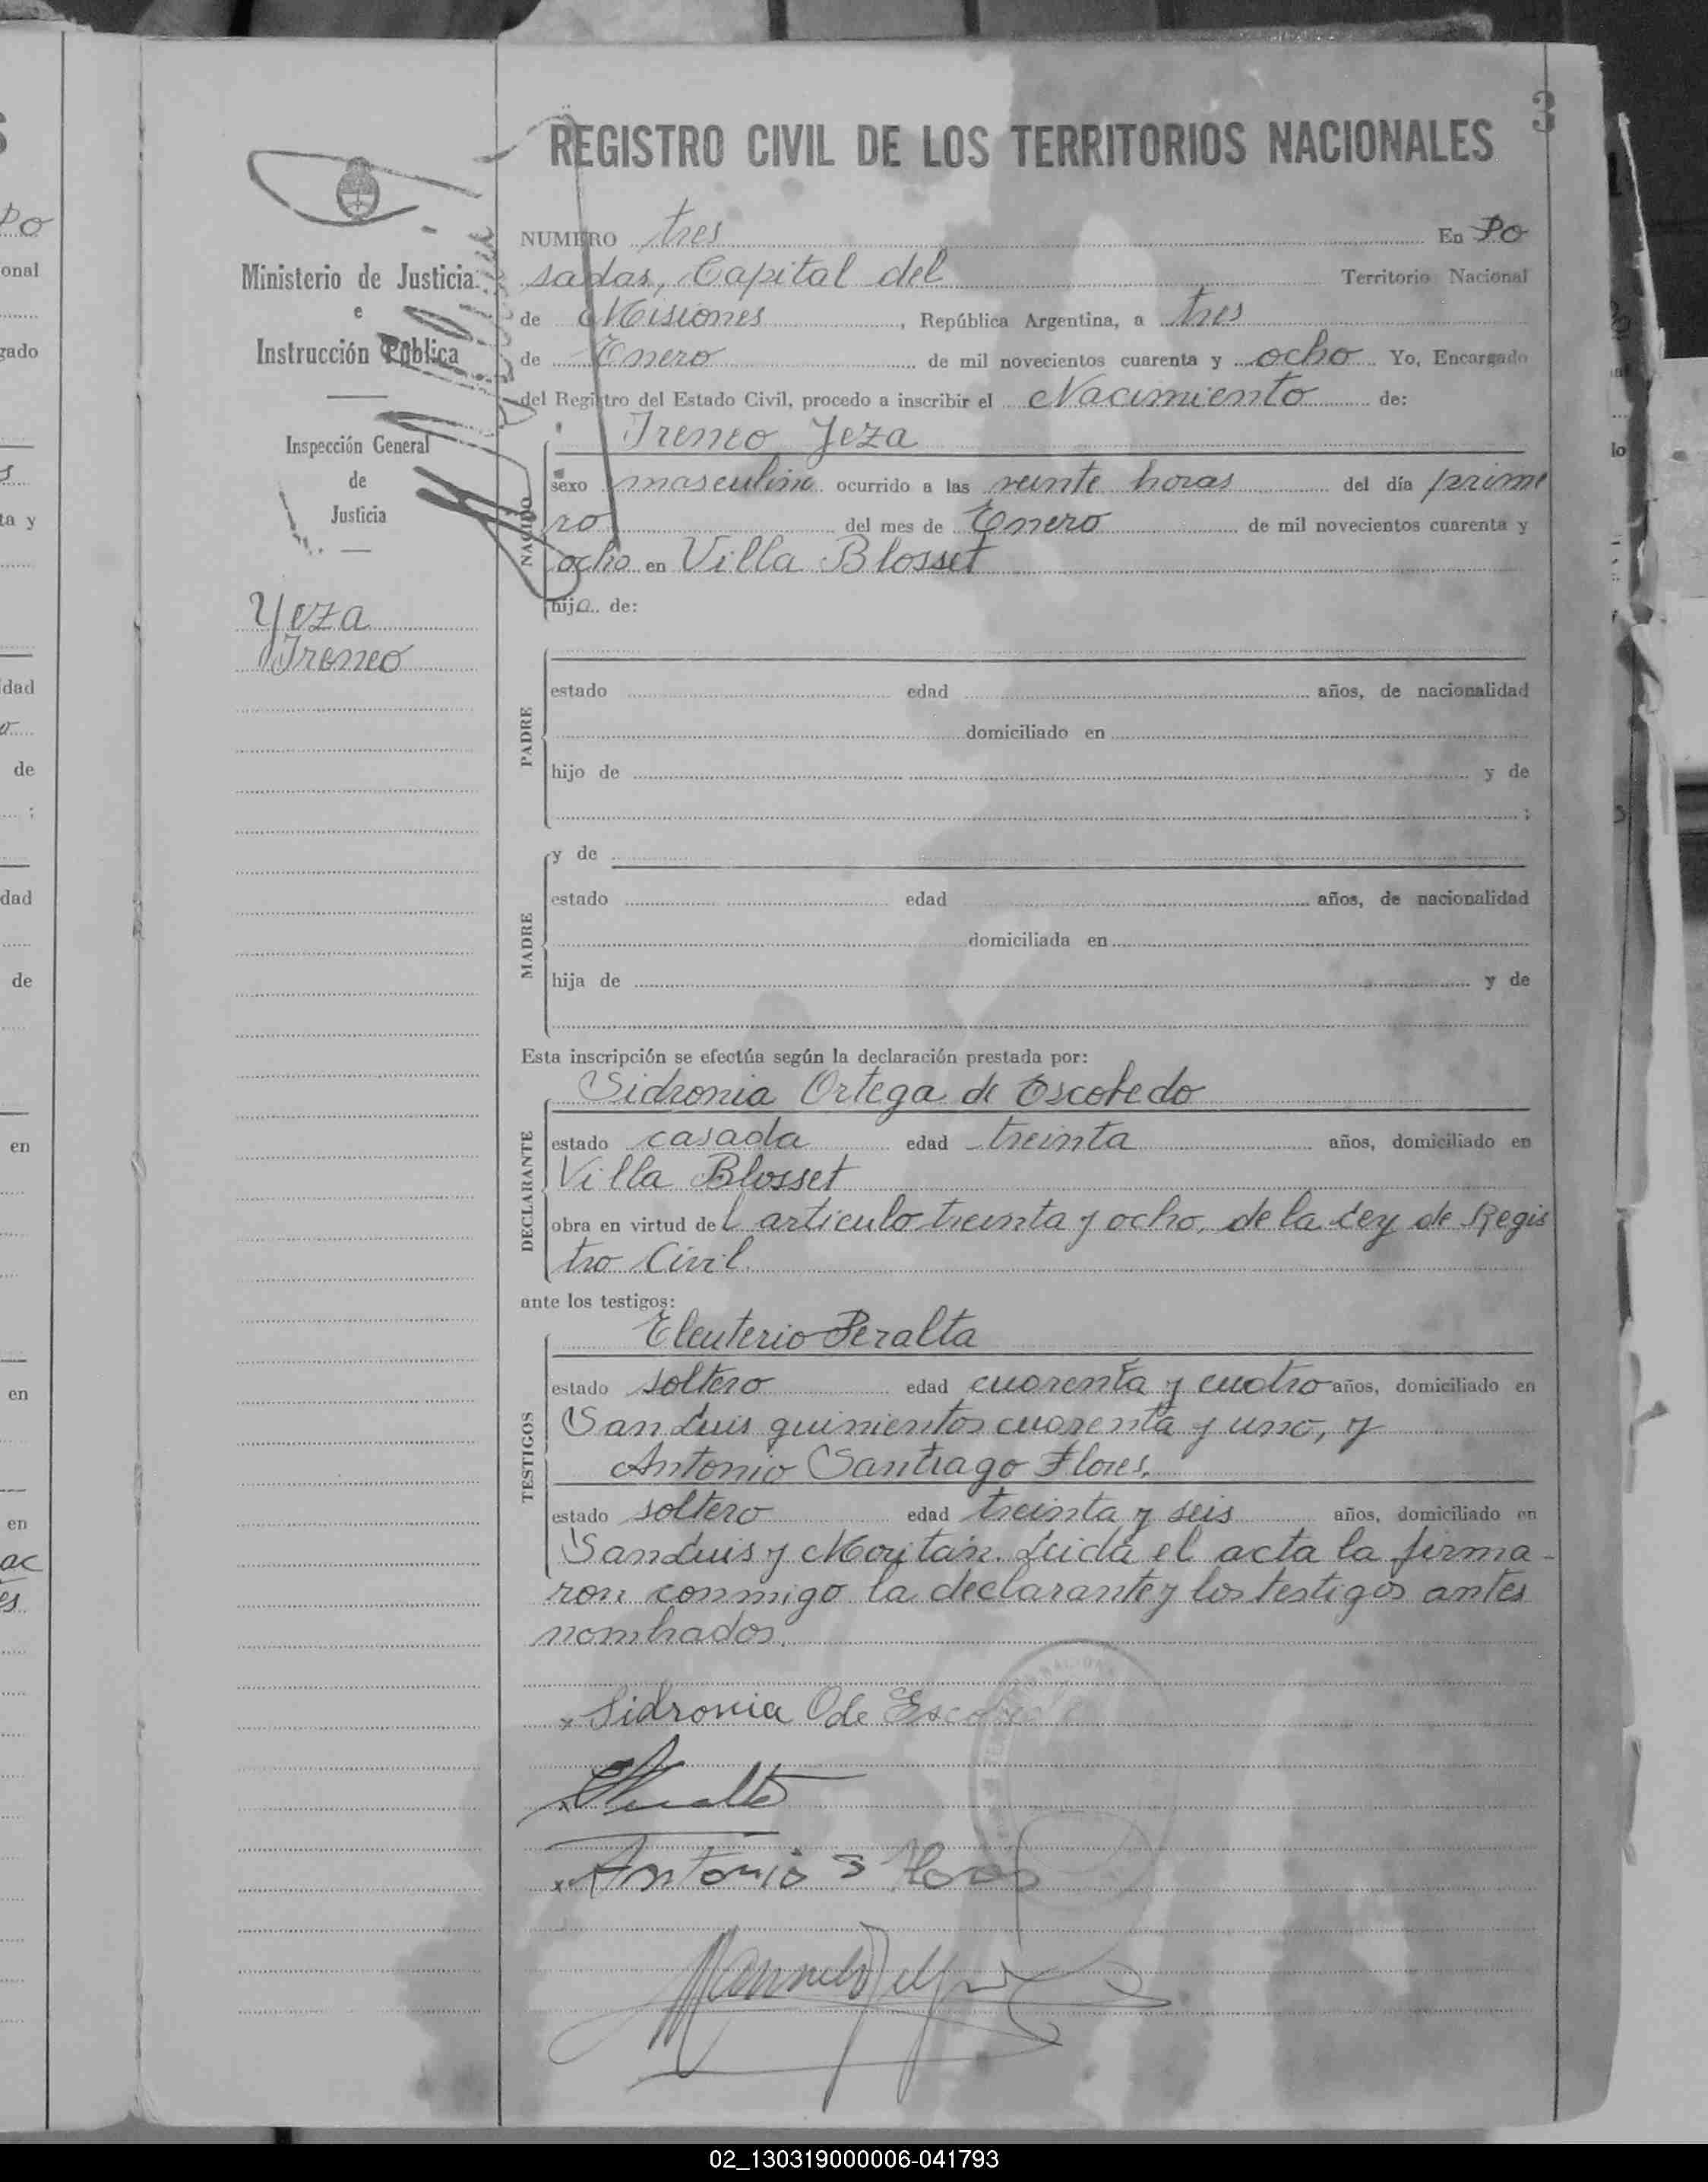 3
REGISTRO CIVIL DE LOS TERRITORIOS NACIONALES
Ministerio de Justicia
e
Instrucción Pública
Inspección General
de
Justicia
Yeza
Ireneo
NUMERO tres En Po
sadas, Capital del Territorio Nacional
de Misiones, República Argentina, a tres
de Enero de mil novecientos cuarenta y ocho Yo, Encargado
del Registro del Estado Civil, procedo a inscribir el Nacimiento de:
Ireneo Yeza
NACIDO
sexo masculino ocurrido a las veinte horas del día prime
ro del mes de Enero de mil novecientos cuarenta y
ocho en Villa Blosset
hijo de:
PADRE
estado edad años, de nacionalidad
domiciliado en
hijo de y de
;
MADRE
y de
estado edad años, de nacionalidad
domiciliada en
hija de y de
Esta inscripción se efectúa según la declaración prestada por:
DECLARANTE
Sidronia Ortega de Escobedo
estado casada edad treinta años, domiciliado en
Villa Blosset
obra en virtud del articulo treinta y ocho, de la Ley de Regis
tro Civil.
ante los testigos:
TESTIGOS
Eleuterio Peralta
estado soltero edad cuarenta y cuatro años, domiciliado en
San Luis quinientos cuarenta y uno, y
Antonio Santiago Flores,
estado soltero edad treinta y seis años, domiciliado en
San Luis y Moritán. Leida el acta la firma-
ron conmigo la declarante y los testigos antes
nombrados.
x Sidronia O de Escobedo
x Peralta
x Antonio S Flores
02_130319000006-041793